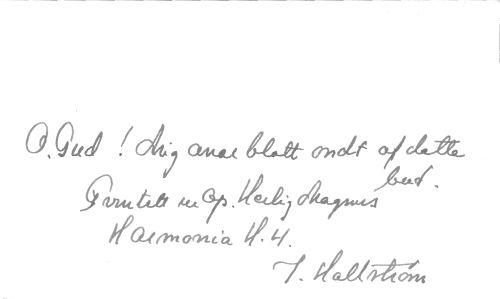 O. Gud! Mig anar blott ondt af detta
bud.
Qvintett ur Op. Hertig Magnus
Harmonia H. 4.
I. Hallström